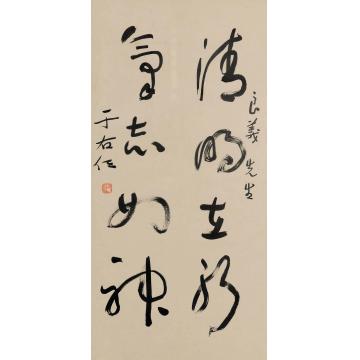 良義先生
清明在躬
氣志如神
于右任